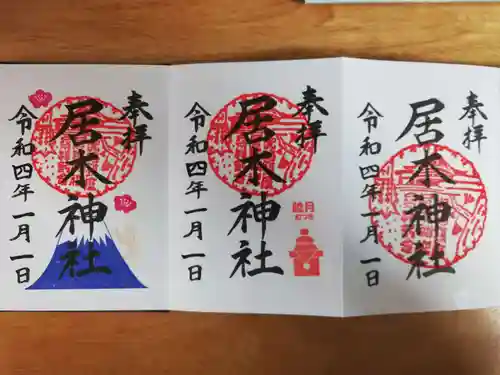 奉拝
居木神社
令和四年一月一日
奉拝
居木神社
令和四年一月一日
睦月
むつき
奉拝
居木神社
令和四年一月一日